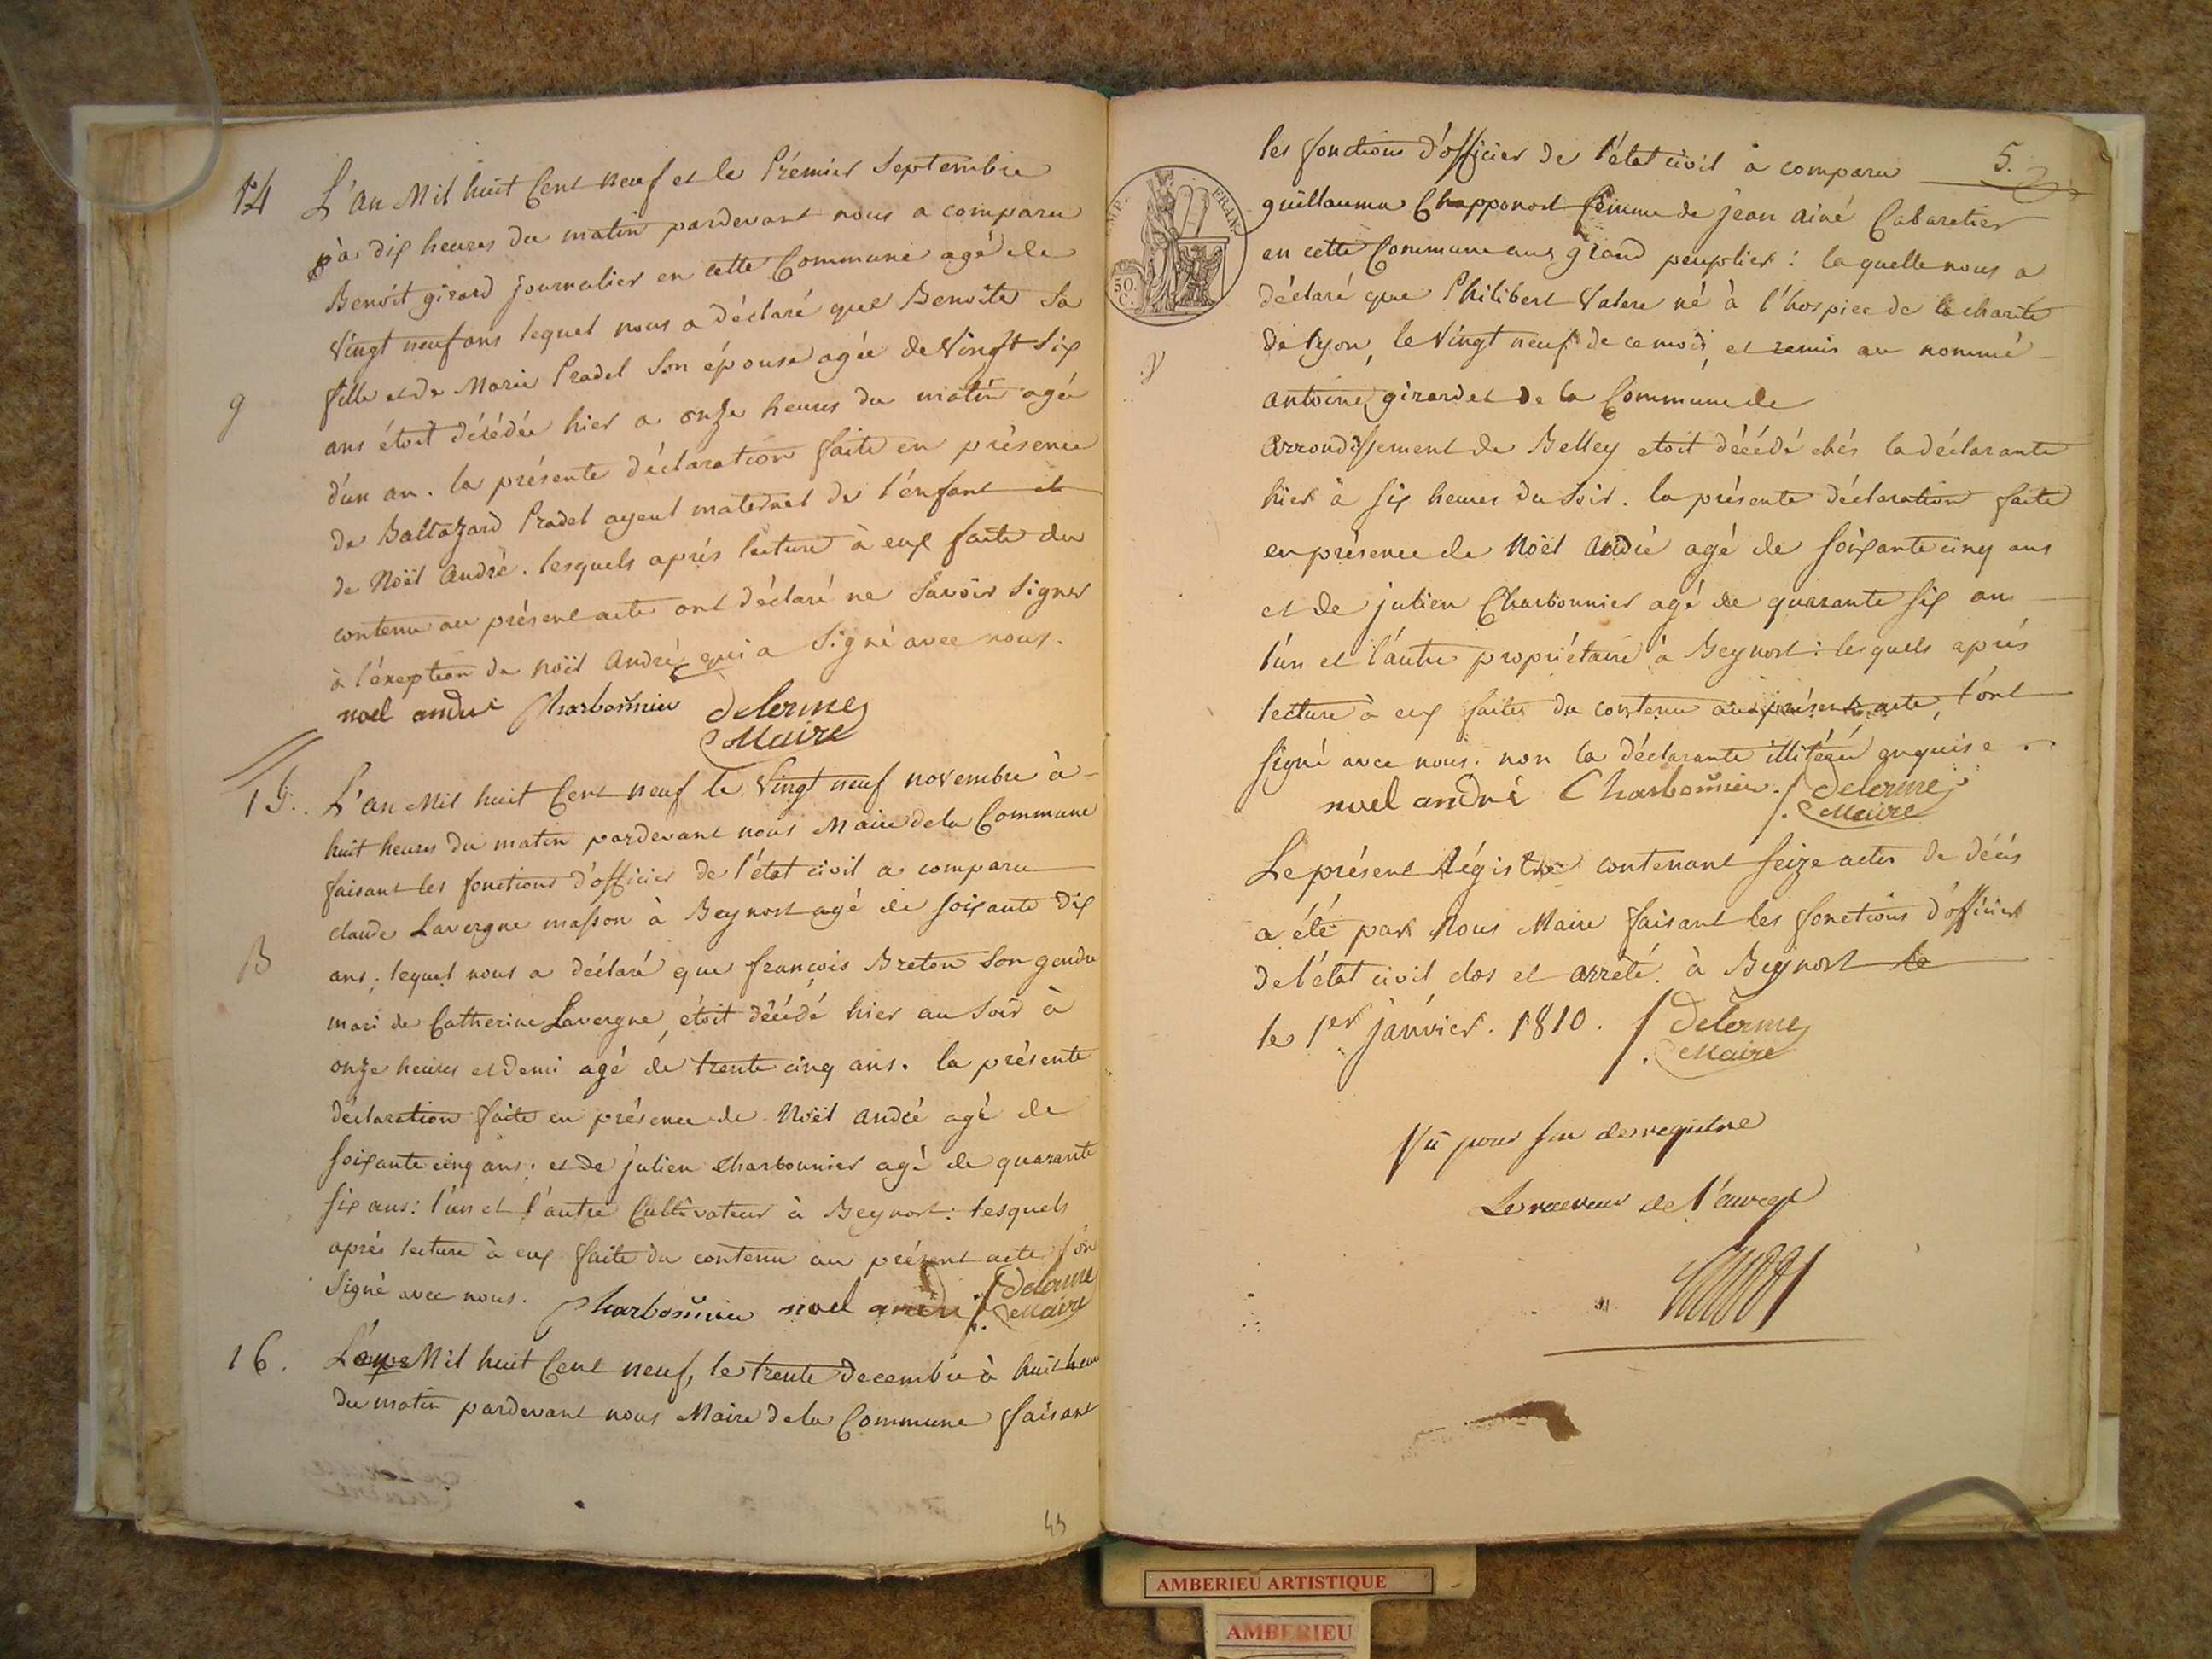 14
L'an Mil huit Cent neuf et le Prémier Septembre
à dix heures du matin pardevant nous a comparu
Benoit girard journalier en cette Commune agé de
Vingt neuf ans lequel nous a déclaré que Benoîte Sa
fille et de Marie Pradel Son épouse agée de Vingt Six
g
ans étoit décédée hier a onze heures du matin agée
d'un an. la présente déclaration faite en présence
de Baltazard Pradel ayeul maternel de l'énfant et
de Noël André. lesquels aprés lecture à eux faite du
contenu au présent acte ont déclaré ne Savoir Signer
à l'éxeption de noël André qui a Signé avec nous.
noel andré Charbonnier delorme
Maire
15.
L'an Mil huit Cent neuf le Vingt neuf novembre à
huit heures du matin pardevant nous Maire de la Commune
faisant les fonctions d'officier de l'état civil a comparu
claude Lavergne masson à Beynost agé de soixante dix
B
ans; lequel nous a déclaré que françois Breton Son gendre
mari de Catherine Lavergne, étoit décédé hier au Soir à
onze heures et demi agé de trente cinq ans. la présente
déclaration faite en présence de Noël André agé de
soixante cinq ans; et de julien Charbonnier agé de quarante
six ans: l'un et l'autre Cultivateur à Beynost: lesquels
aprés lecture à eux faite du contenu au présent acte l'on
Signé avec nous. Charbonnier noel andré delorme
Maire
16.
L'an Mil huit Cent neuf, le trente decembre à huit heur
du matin pardevant nous Maire de la Commune faisant
43
5.
les fonctions d'officier de l'état civil à comparu
guillauma Chapponost femme de jean ainé Cabaretier
en cette Commune aux grand peuplier: laquelle nous a
déclaré que Philibert Valere né à l'hospice de la charité
de lyon, le Vingt neuf de ce mois, et remis au nommé
antoine girardet de la Commune de
arrondissement de Belley etoit décédé chés la déclarante
hier à six heures du Soir. la présente déclaration faite
en présence de Noël André agé de soixante cinq ans
et de julien Charbonnier agé de quarante six ans
l'un et l'autre propriétaire à Beynost: lesquels aprés
lecture à eux faites du contenu au présent acte, l'ont
signé avec nous. non la déclarante illitérée enquise.
noel andré Charbonnier. delorme
Maire
Le présent Régistre contenant seize actes de décés
a été par Nous Maire faisant les fonctions d'officier
de l'état civil clos et arrété. à Beynost le
le 1er janvier. 1810. delorme
Maire
Vu pour fin de registre
Le receveur de l'enregt
IMP. FRAN.
50.
C.
AMBERIEU ARTISTIQUE
AMBERIEU